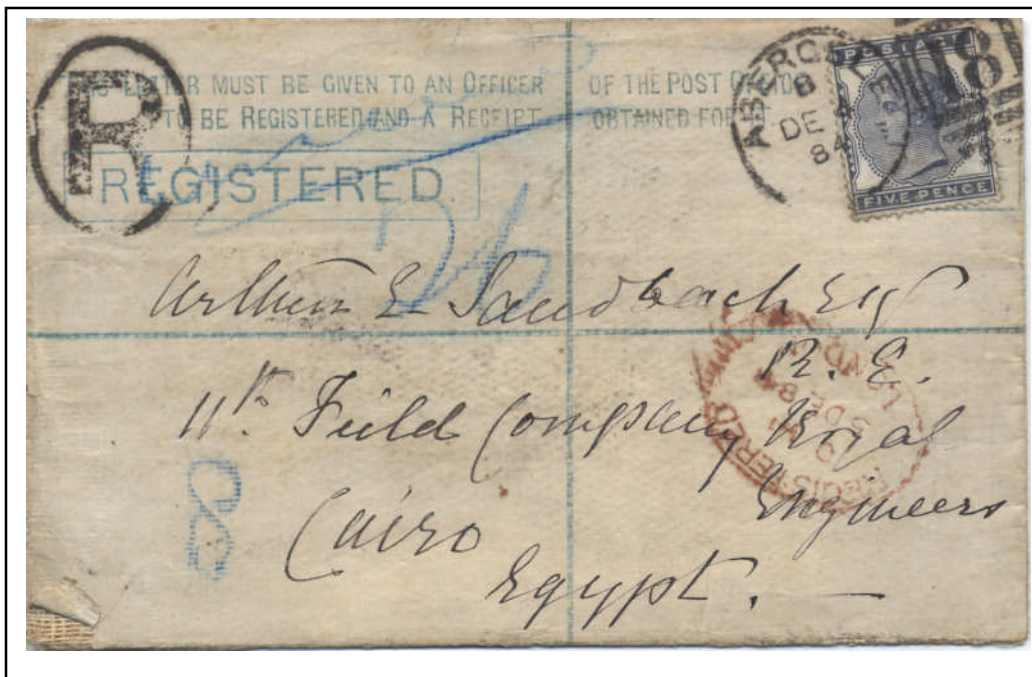 R
THIS LETTER MUST BE GIVEN TO AN OFFICER OF THE POST OFFICE TO
BE REGISTERED AND A RECEIPT OBTAINED FOR IT.
REGISTERED.
ABERG
B
DE 4
84
18
POSTAGE
FIVE PENCE
Arthur E Sandbach Esq
R. E.
11th Field Company Royal
Engineers
Cairo
Egypt. —
REGISTERED
LONDON
5 DE 84
8